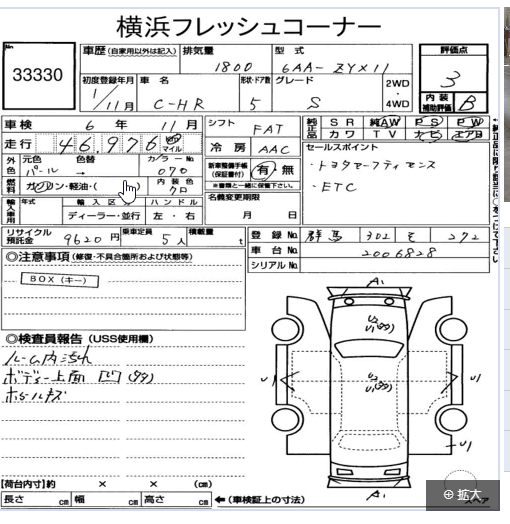 横浜フレッシュコーナー
No
33330
車歴(自家用以外は記入)
排気量
1800
型式
6AA-ZYX11
評価点
3
初度登録年月
1/11月
車名
C-HR
形状・ドア数
5
グレード
S
2WD・4WD
内装補助評価
B
車検
6年11月
シフト
FAT
純正品
SR 純AW PS PW
カワ TV ナビ エアB
走行
46,976
マイル
冷房
AAC
セールスポイント
・トヨタセーフティセンス
・ETC
外色
元色
パール
色替
→
カラーNo
070
新車整備手帳(保証書付)
有・無
※書類と一緒に保管下さい。
燃料
ガソリン・軽油・( )
内装色
クロ
名義変更期限
月 日
輸入車用
年式
輸入区
ディーラー・並行
ハンドル
左・右
リサイクル預託金
9620円
乗車定員
5人
積載量
t
登録No.
群馬 302 そ 272
車台No.
2006828
シリアルNo.
◎注意事項(修復・不具合箇所および状態等)
BOX(キー)
◎検査員報告(USS使用欄)
ルーム内汚れ
ボディー上面凹(多)
ホイールキズ
A1
U2
U1(多)
U2
U1(多)
U1
U1
U1
A1
【荷台内寸】約 × × (cm)
長さ cm 幅 cm 高さ cm
←(車検証上の寸法)
スペア
拡大